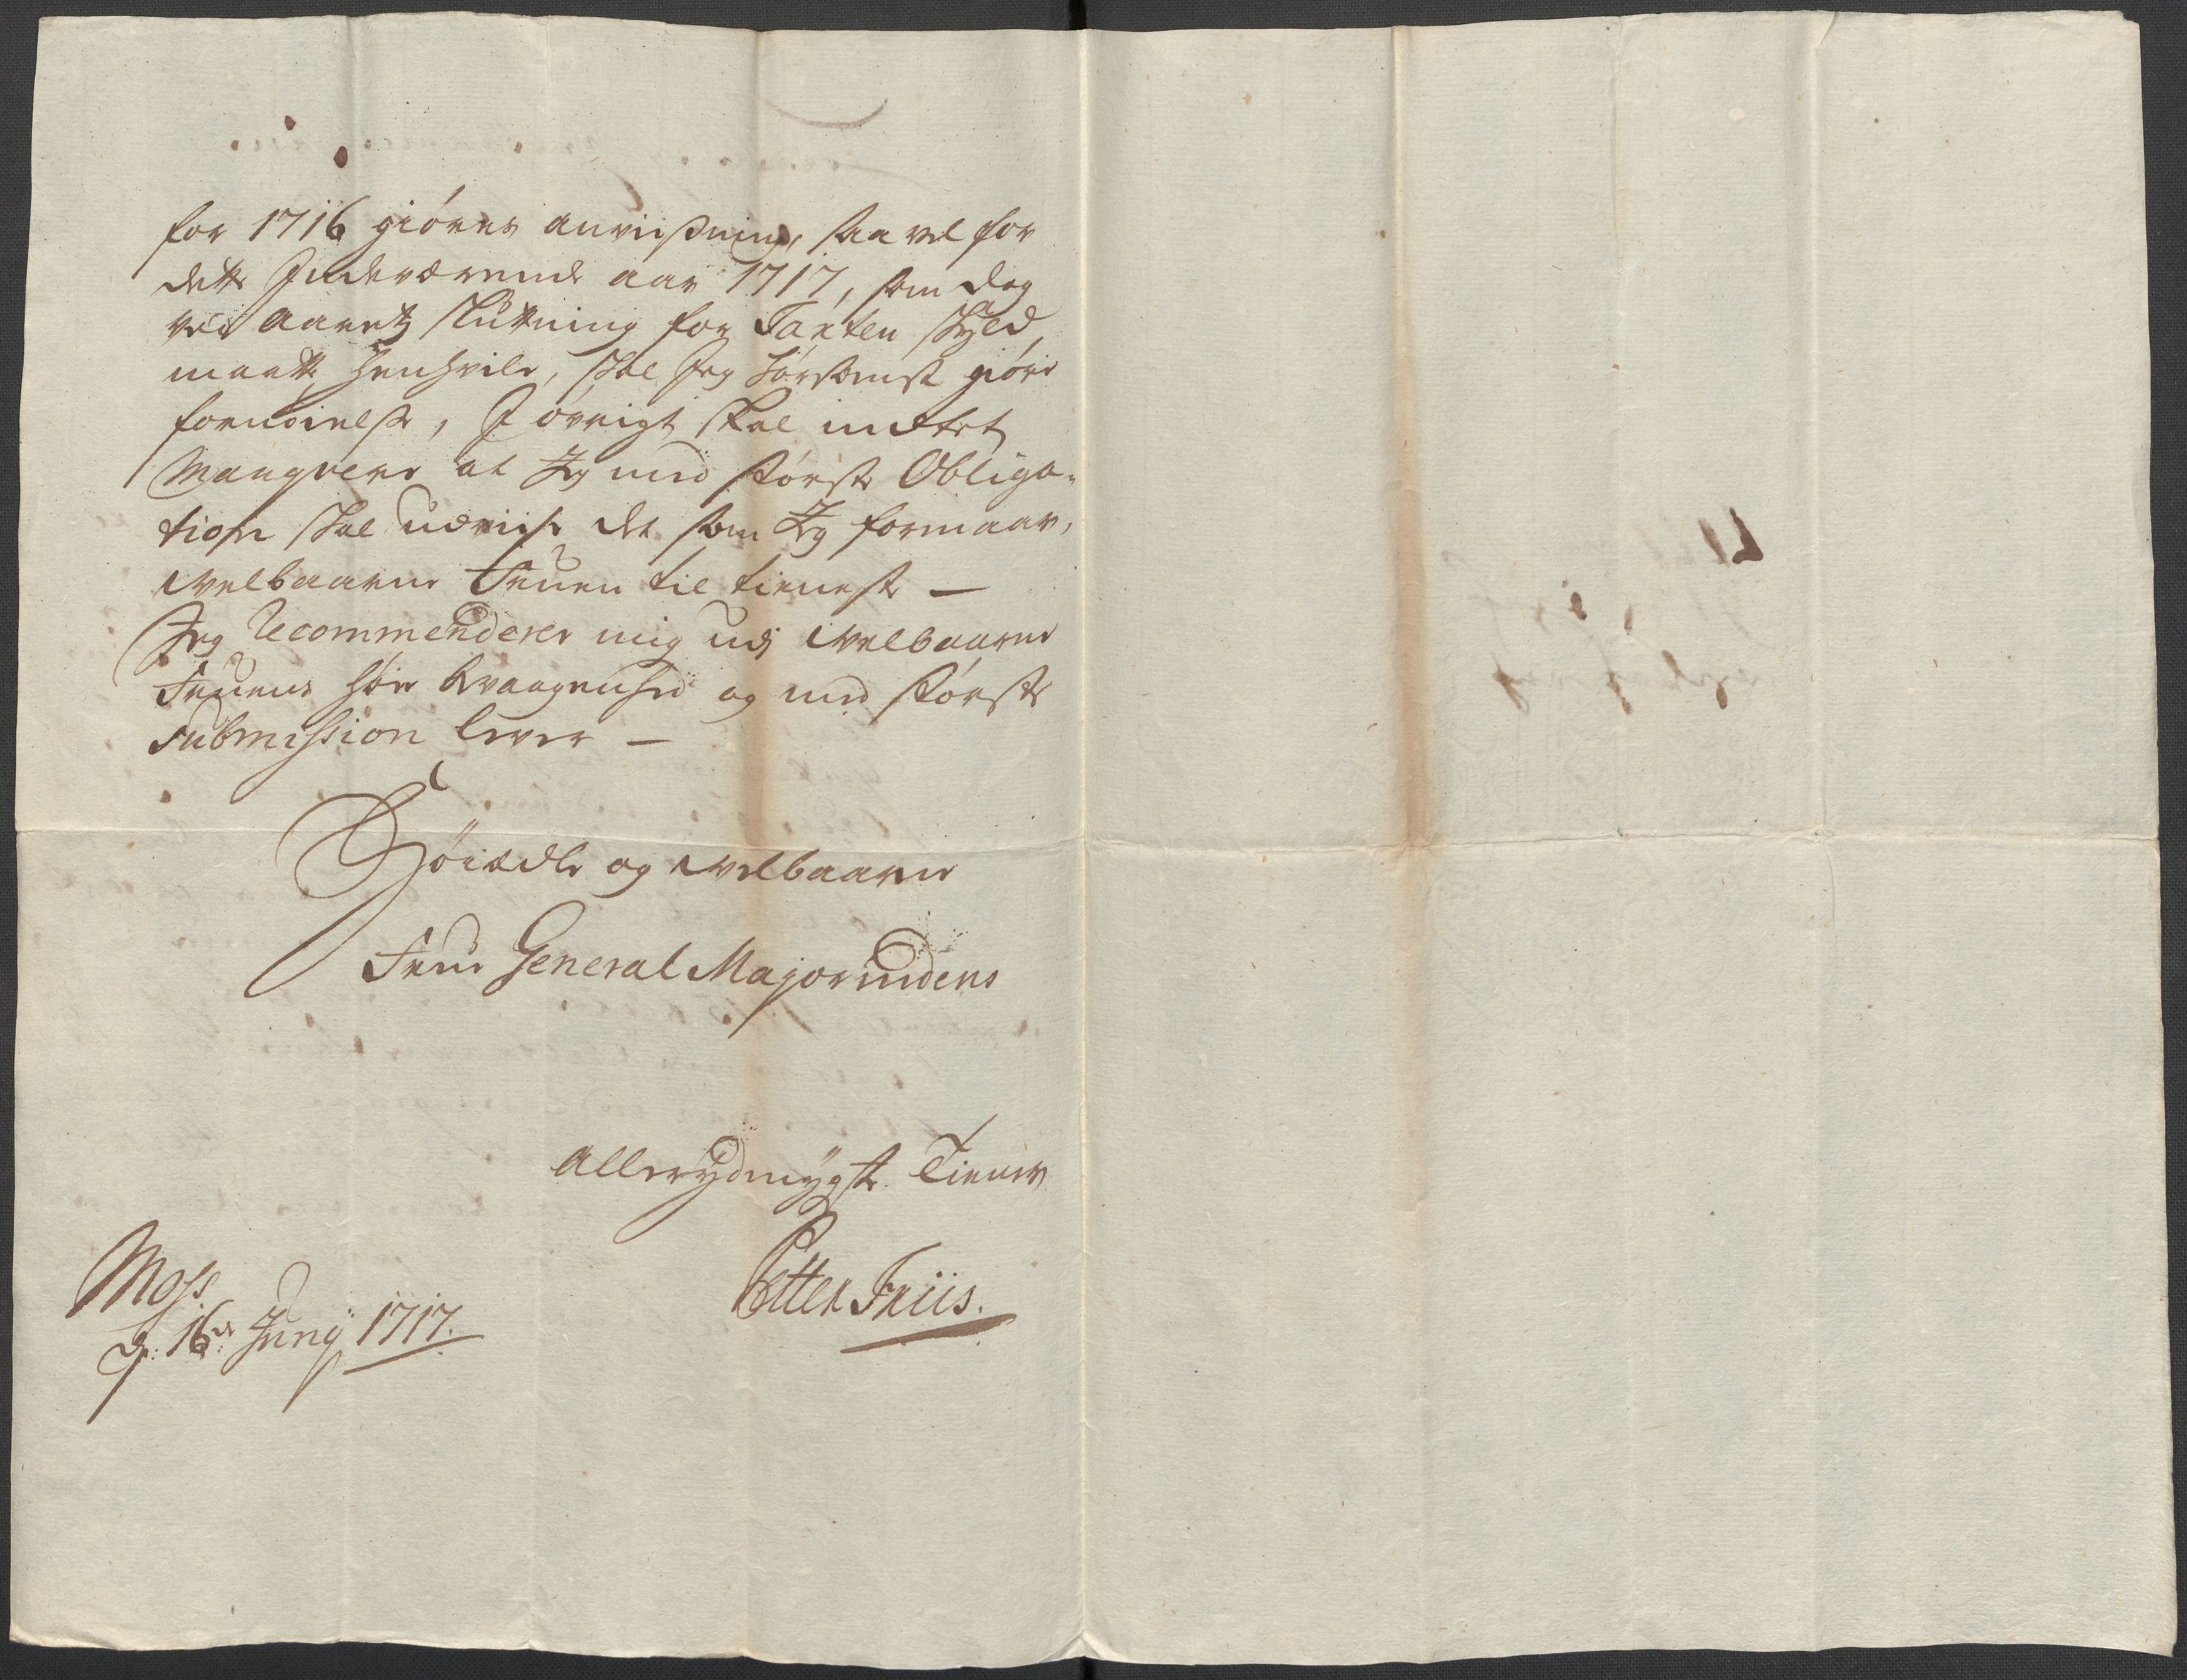 for 1716 giøres anviisning, saa vel for
dette Indeværende aar 1717, som dog
ved aaretz slutning for Taxten skyld
maatte henhvile, skal Jeg hørsomst giøre
fornøielse, I øvrigt skal indtet
Manqvere at Jeg med største Obliga-
tion skal udviise det som Jeg formaar,
Velbaarne Fruen til tieneste —
Jeg Recommenderer mig udj Velbaarne
Fruens høie bevaagenhed og med største
Submission lever —
Høiædle og Velbaarne
Frue General Majorindens
allerydmygste Tiener
Petter Friis.
Moss
d: 16de Junÿ 1717.